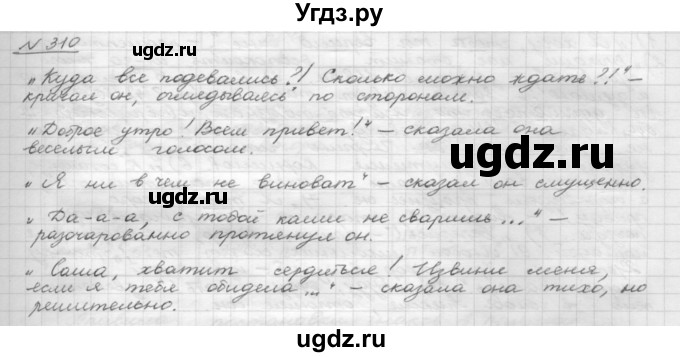 Угдз.ру
N 310
„Куда все подевались?! Сколько можно ждать?!" –
кричал он, оглядываясь по сторонам.
„Доброе утро! Всем привет!" – сказала она
веселым голосом.
„Я ни в чем не виноват" – сказал он смущенно.
„Да-а-а, с тобой каши не сваришь..." –
разочарованно протянул он.
„Саша, хватит сердиться! Извини меня,
если я тебя обидела..." – сказала она тихо, но
решительно.
ugdz.ru
ugdz.ru
ugdz.ru
ugdz.ru
ugdz.ru
ugdz.ru
ugdz.ru